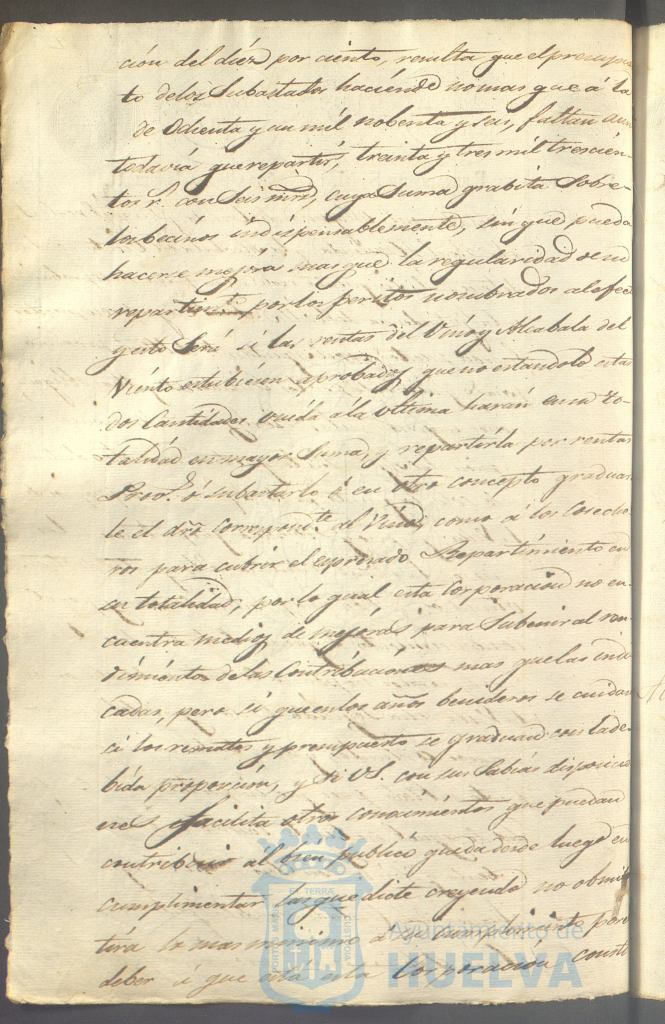 ción del diéz por ciento, resulta que el presupues
to delos Subastados haciénde nomas que á la
de Ochenta y un mil nobenta y seis, faltan aun
todavia que repartír, treinta y tres mil trescién-
tos r.^s con seis mrs, cuya suma grabíta sobre
los becinos indispensablemente, sin que pueda
hacerse mejóra mas que la regularidad de un
repartim.^to por los peritos nombrados al efec
y esto será si las rentas del Vino y Alcabala del
Viénto estubiésen aprobadas, que no estandolo estas
dos Cantidades unida á la última harán en su to-
talidad en mayor Suma, y repartirla por rentas
Prov.^s ó subastarlo é en otro concepto graduar
le el dr̃o correspond.^te al Vino, como á los Coseche
ros para cubrir el expresado Repartimiento en
su totalidad, por lo qual esta Corporación no en-
cuentra medios de mejóras para subenir al ren
dimiénto delas Contribuciones mas que las indi
cadas, pero si que en los años benideros se cuidan
si los remates y presupuesto se graduan con la de
bída proporción, y si V.S. con sus Sabias disposicio
nes facilita otros conocimiéntos que puedan
contribuir al bien público queda desde luego en
cumplimentar las que dicte creyendo no obmi
tirá lo mas menimo á su cumplimiento por
deber á que está esta Corporación consti
Ayuntamiento de
HUELVA